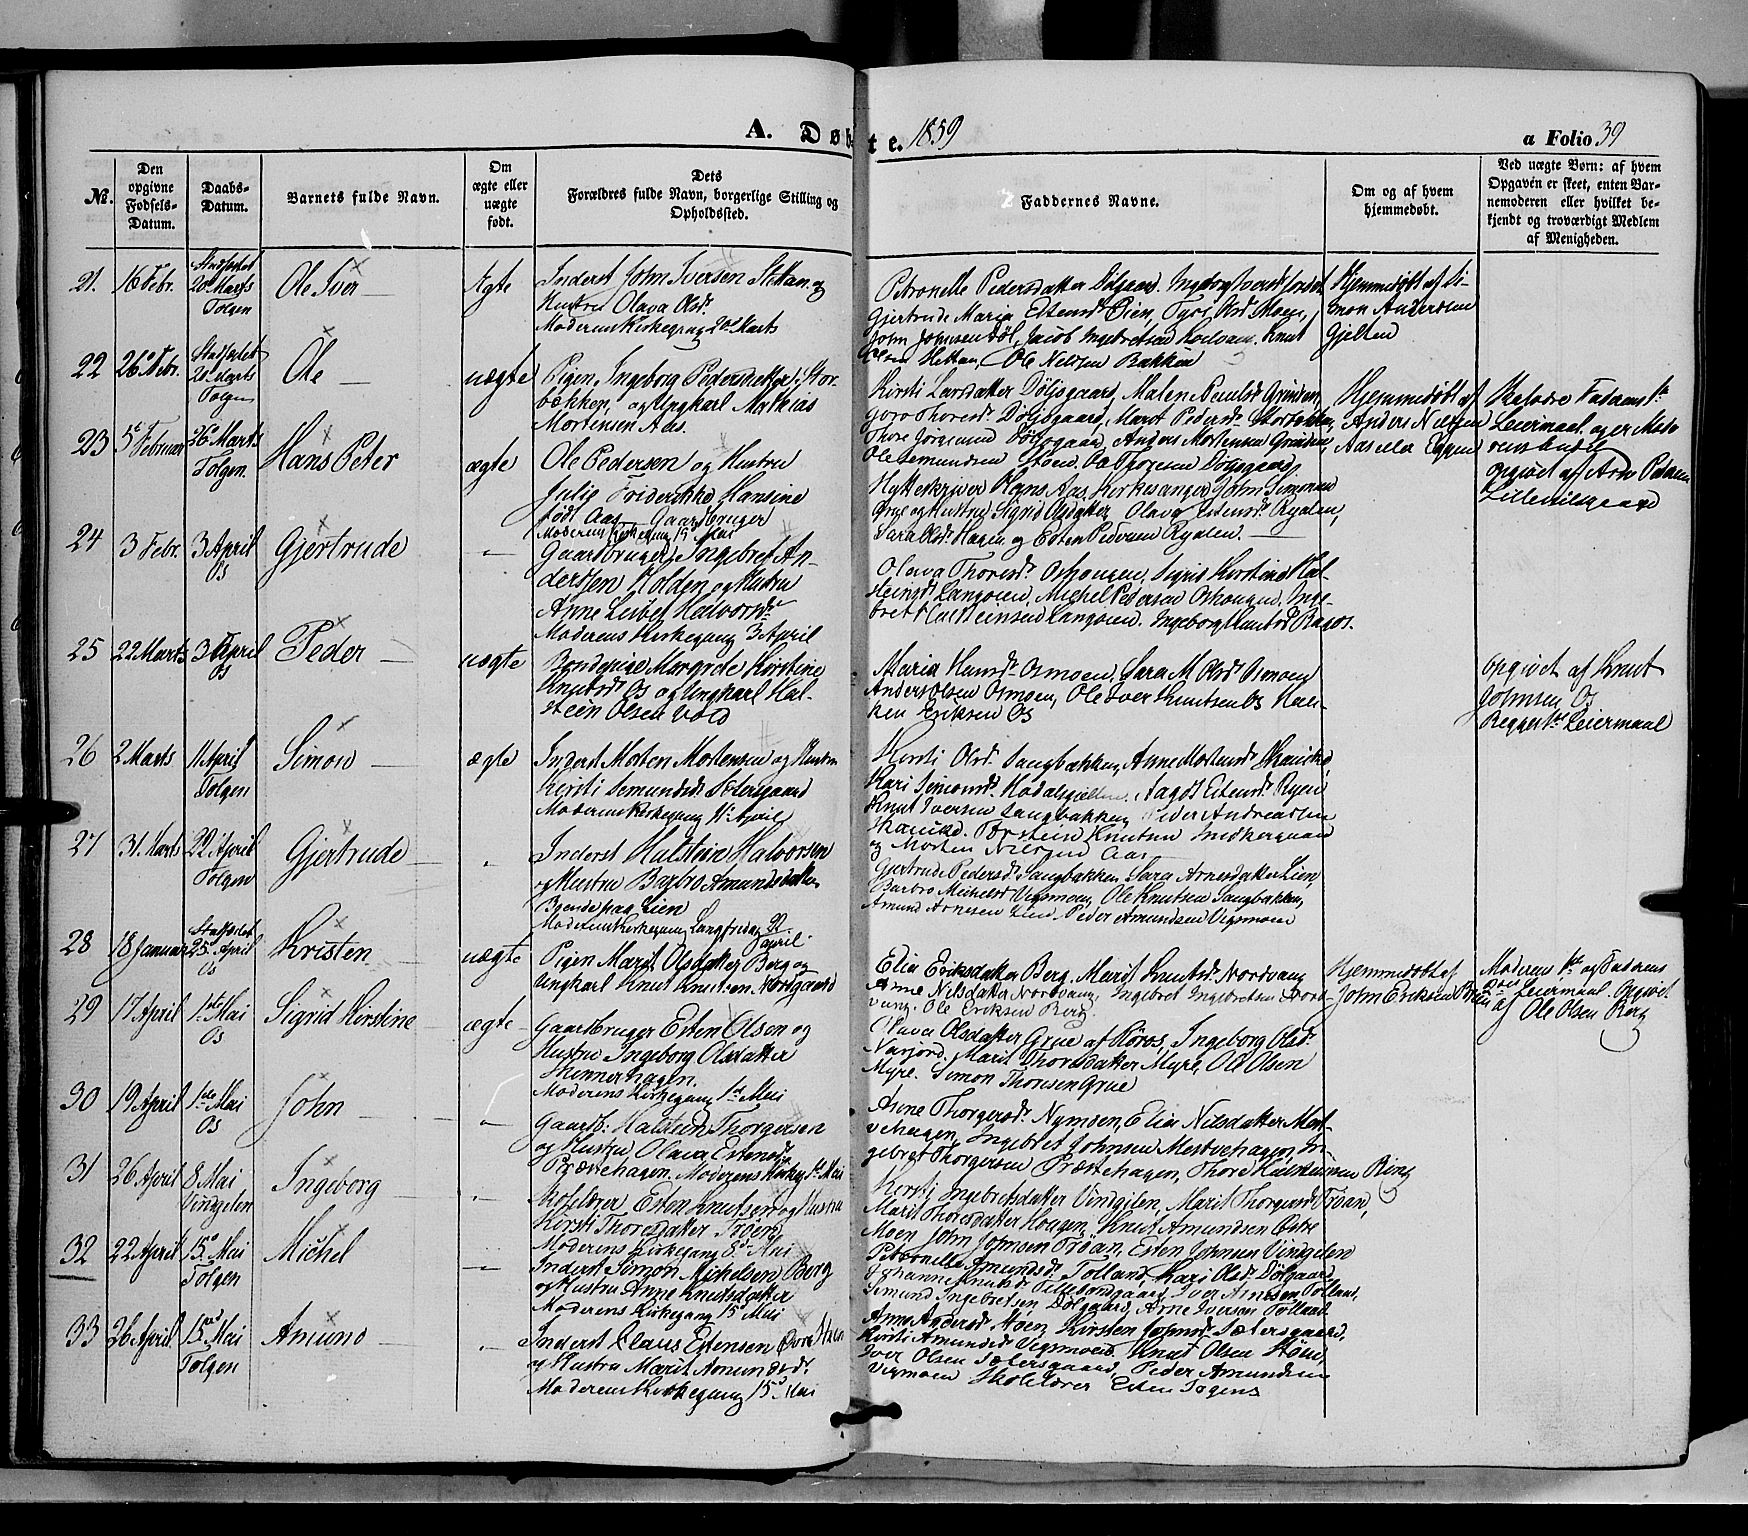 A. Døbte. 1859
a Folio 39
No.
Den opgivne Fødsels-Datum.
Daabs-Datum.
Barnets fulde Navn.
Om ægte eller uægte født.
Dets Forældres fulde Navn, borgerlige Stilling og Opholdssted.
Faddernes Navne.
Om og af hvem hjemmedøbt.
Ved uægte Børn: af hvem Opgaven er skeet, enten Barnemoderen eller hvilket bekjendt og troværdigt Medlem af Menigheden.
21. 16 Febr.
Stadfæstet
20 Marts
Tolgen
Ole Iver
Ægte
Inderst John Iversen og
Hustru Olava Olsd.
Moderens Kirkegang 20 Marts
Petronelle Pedersdatter
Gjertrude Maria Estensd. Øien,
John Johnsen Jacob Ingebretsen Knut
Olsen Ole Nilssen Bakken
Hjemmedøbt af Si-
mon Andersen
Gjelten
22 26 Febr.
Stadfæstet
20 Marts
Tolgen
Ole
uægte
Pigen Ingeborg Pedersdatter Stor-
bækken, og Ungkarl Mathias
Mortensen Aas.
Kirsti Larsdatter Dølgsgaard, Malen
Goro Thoresd. Dølgsgaard, Marit Pedersd. Storbækken,
Thore Anders Mortensen
Ole Semundsen
Hjemmedøbt af
Anders Nilssen
Leiermaal, og er Mode
opgivet af Arne Pedersen
Lillevilsgaard
23 5 Februar
26 Marts
Tolgen
Hans Peter
ægte
Ole Pedersen og Hustru
Julie Friderikke Hansine
født Aas. Gaardbruger
Moderens Kirkegang 15 Mai
Hytteskriver Hans Aas, Kirkesanger John Simonsen
Grue og Hustru Sigrid Olsdatter, Olava Estensd. Ryalen,
Sara Olsd. Hagen og Esten Pedersen Ryalen.
24 3 Febr.
3 April
Os
Gjertrude
Gaardbruger Ingebret An-
dersen Holden og Hustru
Anne Lisbet Halvorsd.
Moderens Kirkegang 3 April
Olava Thoresd. Sigrid Kirstine Hal-
steinsd. Langøien, Michel Pedersen Inge-
bret Halsteinsen Langøien. Ingeborg Knutsd.
25 22 Marts
3 April
Os
Peder
uægte
Bondepige Margrete Kirstine
Knutsd. Os og Ungkarl Hal-
stein Olsen Vold
Maria Osmoen, Sara M. Olsd. Osmoen
Anders Olsen Osmoen, Ole Iver Knutsen Os
Eriksen Os
opgivet af Knut
Johnsen Os
Begges Leiermaal
26 2 Marts
11 April
Tolgen
Simon
ægte
Inderst Morten Mortensen og Hustru
Kirsti Semundsd. Sætersgaard
Moderens Kirkegang 11 April
Kirsti Olsd. Langbækken, Anne Mortensd.
Kari Simonsd. Hodalsgjelten. Aagot Estensd. Ryen
Knut Iversen Langbækken Peder Andreassen
Knutsen
og Morten Nilssen Aas
27 31 Marts
22 April
Tolgen
Gjertrude
Inderst Halstein Halvorsen
og Hustru Barbro Amundsdatter
Boende paa Lien
Moderens Kirkegang Langfredag 22
april.
Gjertrude Pedersd. Langbækken, Sara Arnesdatter Lien,
Barbro Michelsd. Vegsmoen, Ole Knutsen Langbækken,
Amund Arnesen Lien, Peder Amundsen Vegsmoen
28 18 Januar
Stadfæstet
25 April
Os
Kristen
uægte
Pigen Marit Olsdatter Berg og
Ungkarl Knut Knutsen Nordgaard
Elia Eriksdatter Berg. Marit Knutsd. Nordvang
Anne Nilsdatter Nordvang, Ingebret Ingebretsen Nord-
vang. Ole Eriksen Berg.
Hjemmedøbt af
John Eriksen
Moderens 1ste og Faderens
Leiermaal. Opgivet
af Ole Olsen Berg
29 17 April
1ste Mai
Os
Sigrid Kirstine
ægte
Gaardbruger Esten Olsen og
Hustru Ingeborg Olsdatter
Skinnerhagen.
Moderens Kirkegang 1ste Mai
Olava Olsdatter Grue af Röros, Ingeborg Olsd.
Narjord, Marit Thoresdatter Myre, Ole Olsen
Myre. Simon Thoresen Grue
30 19 April
1ste Mai
Os
John
Gaardb: Halstein Thorgersen
og Hustru Olava Estensd.
Præstehagen. Moderens Kirkeg. 1ste Mai
Anne Thorgersd. Nymoen, Elia Nilsdatter
Ingebret Johnsen In-
gebret Thorgersen Præstehagen, Thore
31 26 April
8 Mai
Vingelen
Ingeborg
Skolelærer Esten Knutsen og Hustru
Kirsti Thoresdatter Trøen
Moderens Kirkegang 8de Mai
Kirsti Ingebretsdatter Vindgelen, Marit Trøan,
Marit Thoresdatter Haagen, Knut Amundsen
Moen John Johnsen Trøan, Esten Johnsen Vindgelen
32 22 April
15 Mai
Tolgen
Michel
Inderst Simon Mikelsen Berg
og Hustru Anne Knutsdatter
Moderens Kirkegang 15 Mai
Petronelle Amundsd. Tolland, Kari Olsd. Dølgaard,
Johanne Knutsd. Iver Arnesen Tolland,
Semund Ingebretsen Dølgaard, Arne Iversen Tolland
33 26 April
15 Mai
Tolgen
Amund
Inderst Claus Estensen
og Hustru Marit Amundsd.
Moderens Kirkegang 15 Mai
Anne Andersd. Moen, Kirsten Johnsd. Sætersgaard,
Kirsti Amundsd. Vegsmoen. Knut Olsen
Iver Olsen Sætersgaard, Peder Amundsen
Vegsmoen Skolelærer Esten